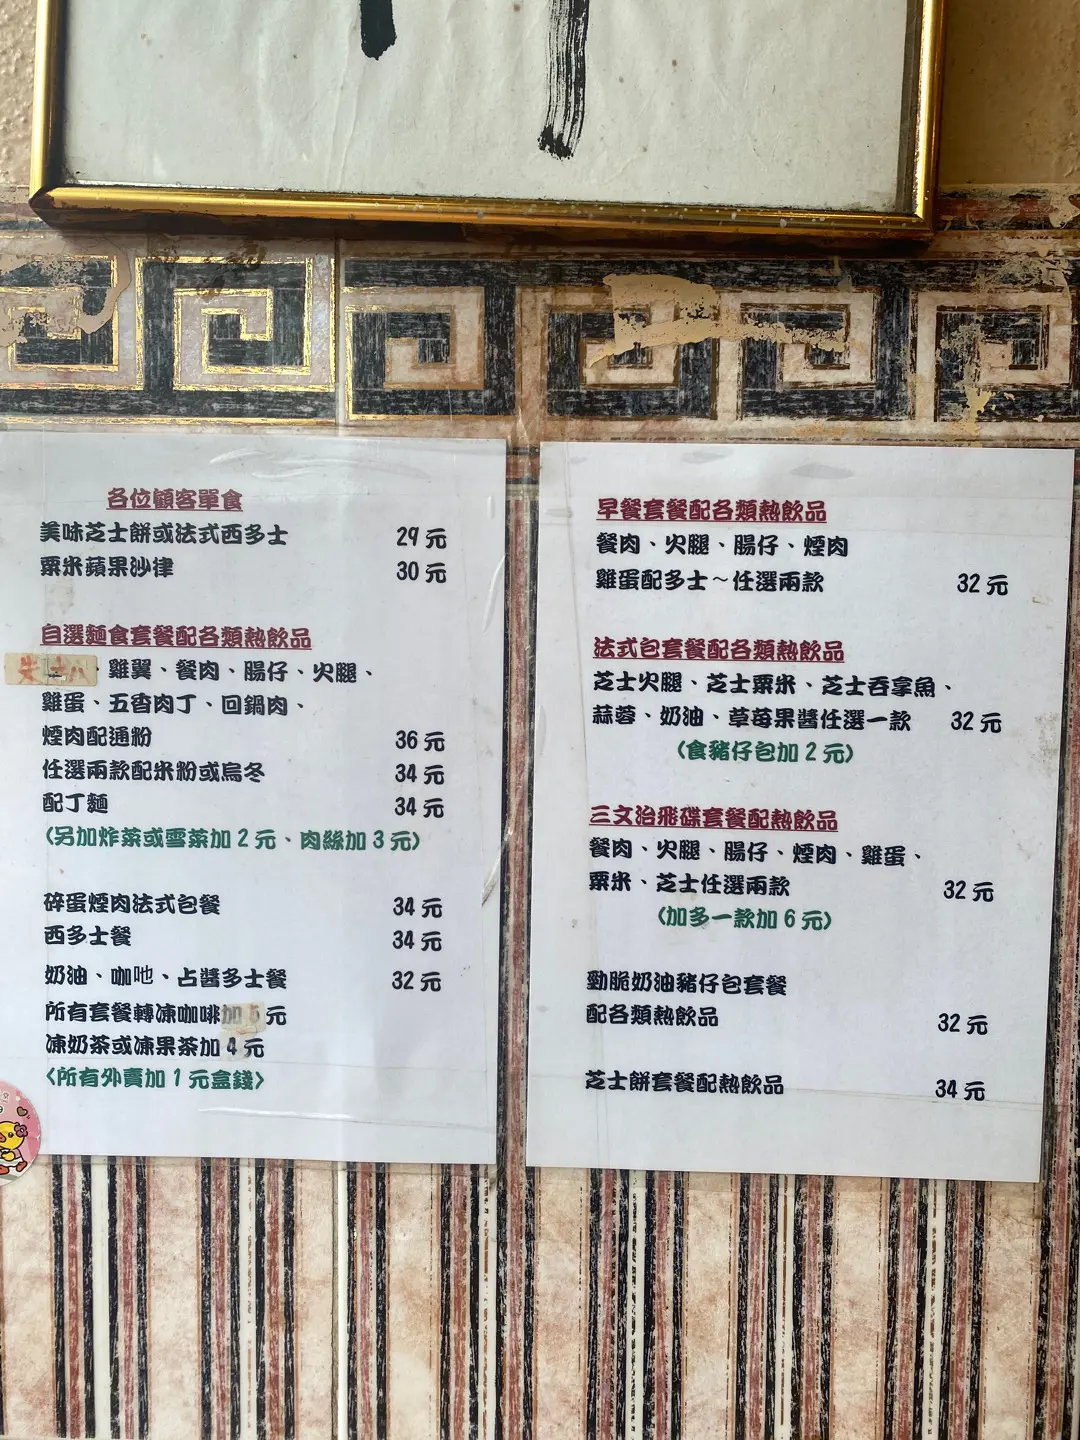 各位顧客單食
美味芝士餅或法式西多士 29元
粟米蘋果沙律 30元
自選麵食套餐配各類熱飲品
雞翼、餐肉、腸仔、火腿、
雞蛋、五香肉丁、回鍋肉、
煙肉配通粉 36元
任選兩款配米粉或烏冬 34元
配丁麵 34元
(另加炸菜或雪菜加2元、肉絲加3元)
碎蛋煙肉法式包餐 34元
西多士餐 34元
奶油、咖吔、占醬多士餐 32元
所有套餐轉凍咖啡加5元
凍奶茶或凍果茶加4元
<所有外賣加1元盒錢>
早餐套餐配各類熱飲品
餐肉、火腿、腸仔、煙肉
雞蛋配多士～任選兩款 32元
法式包套餐配各類熱飲品
芝士火腿、芝士粟米、芝士吞拿魚、
蒜蓉、奶油、草莓果醬任選一款 32元
(食豬仔包加2元)
三文治飛碟套餐配熱飲品
餐肉、火腿、腸仔、煙肉、雞蛋、
粟米、芝士任選兩款 32元
(加多一款加6元)
勁脆奶油豬仔包套餐
配各類熱飲品 32元
芝士餅套餐配熱飲品 34元